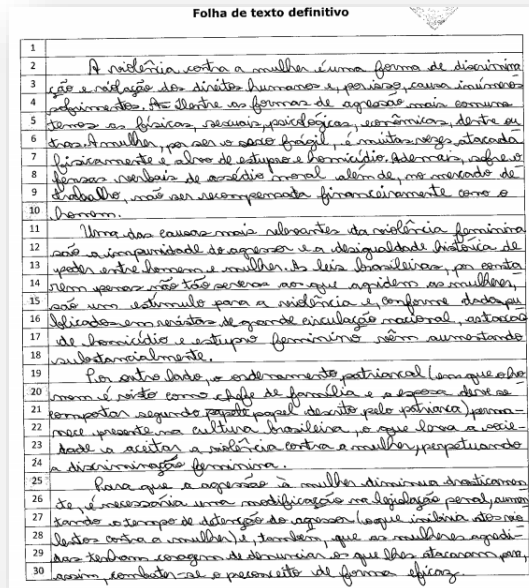 Folha de texto definitivo
1
2 A violência contra a mulher é uma forma de discrimina
3 ção e violação dos direitos humanos e, por isso, causa inúmeros
4 sofrimentos. Dentre as formas de agressão mais comuns
5 temos as físicas, sexuais, psicológicas, econômicas, dentre ou
6 tras. A mulher, por ser o sexo frágil, é muitas vezes atacada
7 fisicamente e alvo de estupro e homicídio. Ademais, sofre o
8 fensas verbais de assédio moral alem de, no mercado de
9 trabalho, não ser recompensada financeiramente como o
10 homem.
11 Uma das causas mais relevantes da violência feminina
12 são a impunidade do agressor e a desigualdade histórica de
13 poder entre homem e mulher. As leis brasileiras, por conta
14 rem penas não tão severas aos que agridem as mulheres,
15 são um estímulo para a violência e, conforme dados pu
16 blicados em revistas de grande circulação nacional, as taxas
17 de homicídio e estupro feminino vêm aumentando
18 substancialmente.
19 Por outro lado, o ordenamento patriarcal (em que o ho
20 mem é visto como chefe de família e a esposa deve se
21 comportar segundo papel descrito pelo patriarca), perma-
22 nece presente na cultura brasileira, o que leva a socie-
23 dade a aceitar a violência contra a mulher, perpetuando
24 a discriminação feminina.
25 Para que a agressão à mulher diminua drasticamen
26 te, é necessária uma modificação na legislação penal, aumen
27 tando o tempo de detenção do agressor (o que inibiria atos vio
28 lentos contra a mulher) e, também, que as mulheres agredi-
29 das tenham coragem de denunciar os que lhes atacaram para,
30 assim, combater-se o preconceito de forma eficaz.